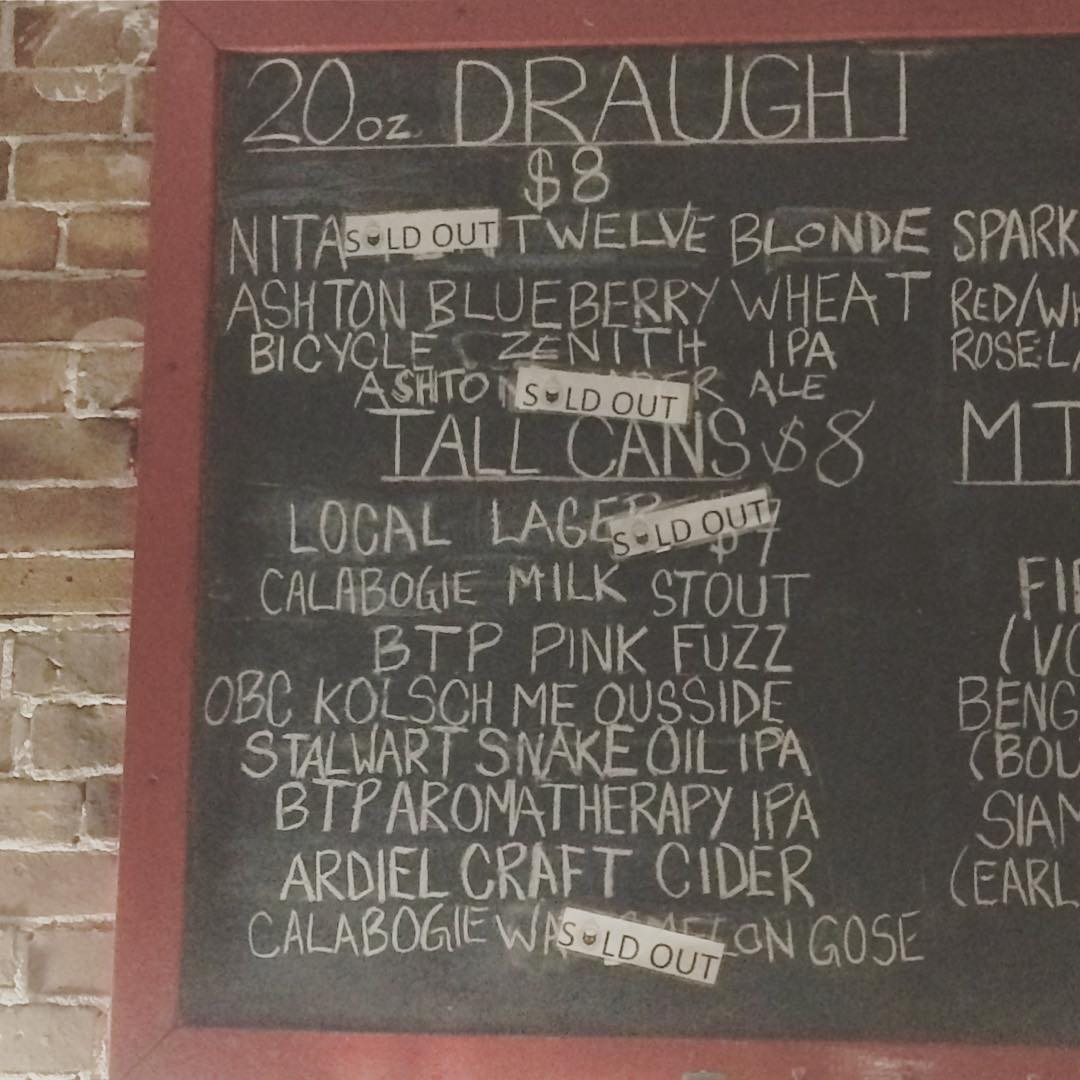 20oz DRAUGHT
$8
NITA SOLD OUT TWELVE BLONDE
ASHTON BLUEBERRY WHEAT
BICYCLE ZENITH IPA
ASHTON SOLD OUT ALE
TALL CANS $8
LOCAL LAGER SOLD OUT $7
CALABOGIE MILK STOUT
BTP PINK FUZZ
OBC KOLSCH ME OUSSIDE
STALWART SNAKE OIL IPA
BTP AROMATHERAPY IPA
ARDIEL CRAFT CIDER
CALABOGIE SOLD OUT GOSE
SPARK
RED/WH
ROSE:LA
MT
FIR
(VO
BENG
(BOU
SIAM
(EARL